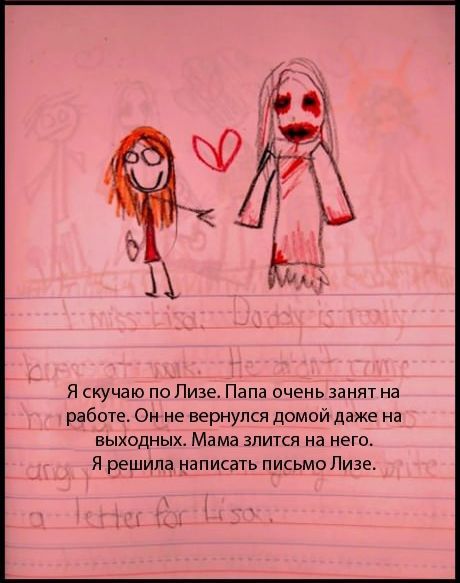 I miss Lisa. Daddy is really
busy at work. He didn't come
Я скучаю по Лизе. Папа очень занят на
работе. Он не вернулся домой даже на
выходных. Мама злится на него.
Я решила написать письмо Лизе.
angry at him. write
a letter for Lisa.